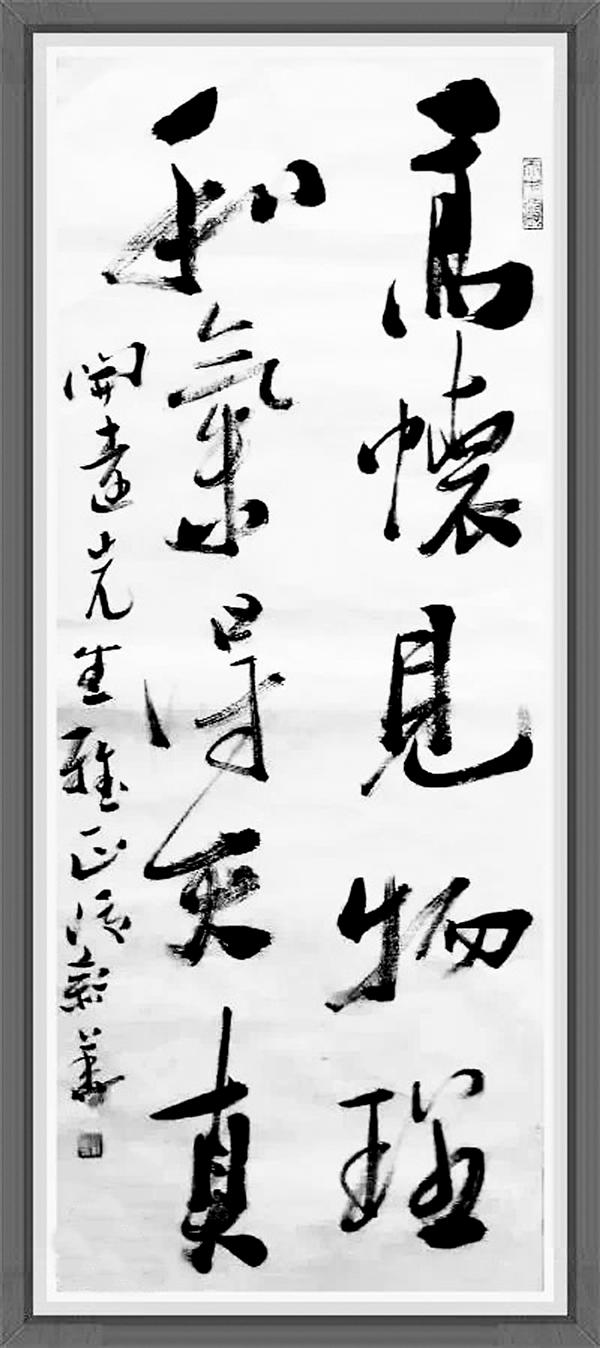 高懷見物理
和氣得天真
開遠先生雅正